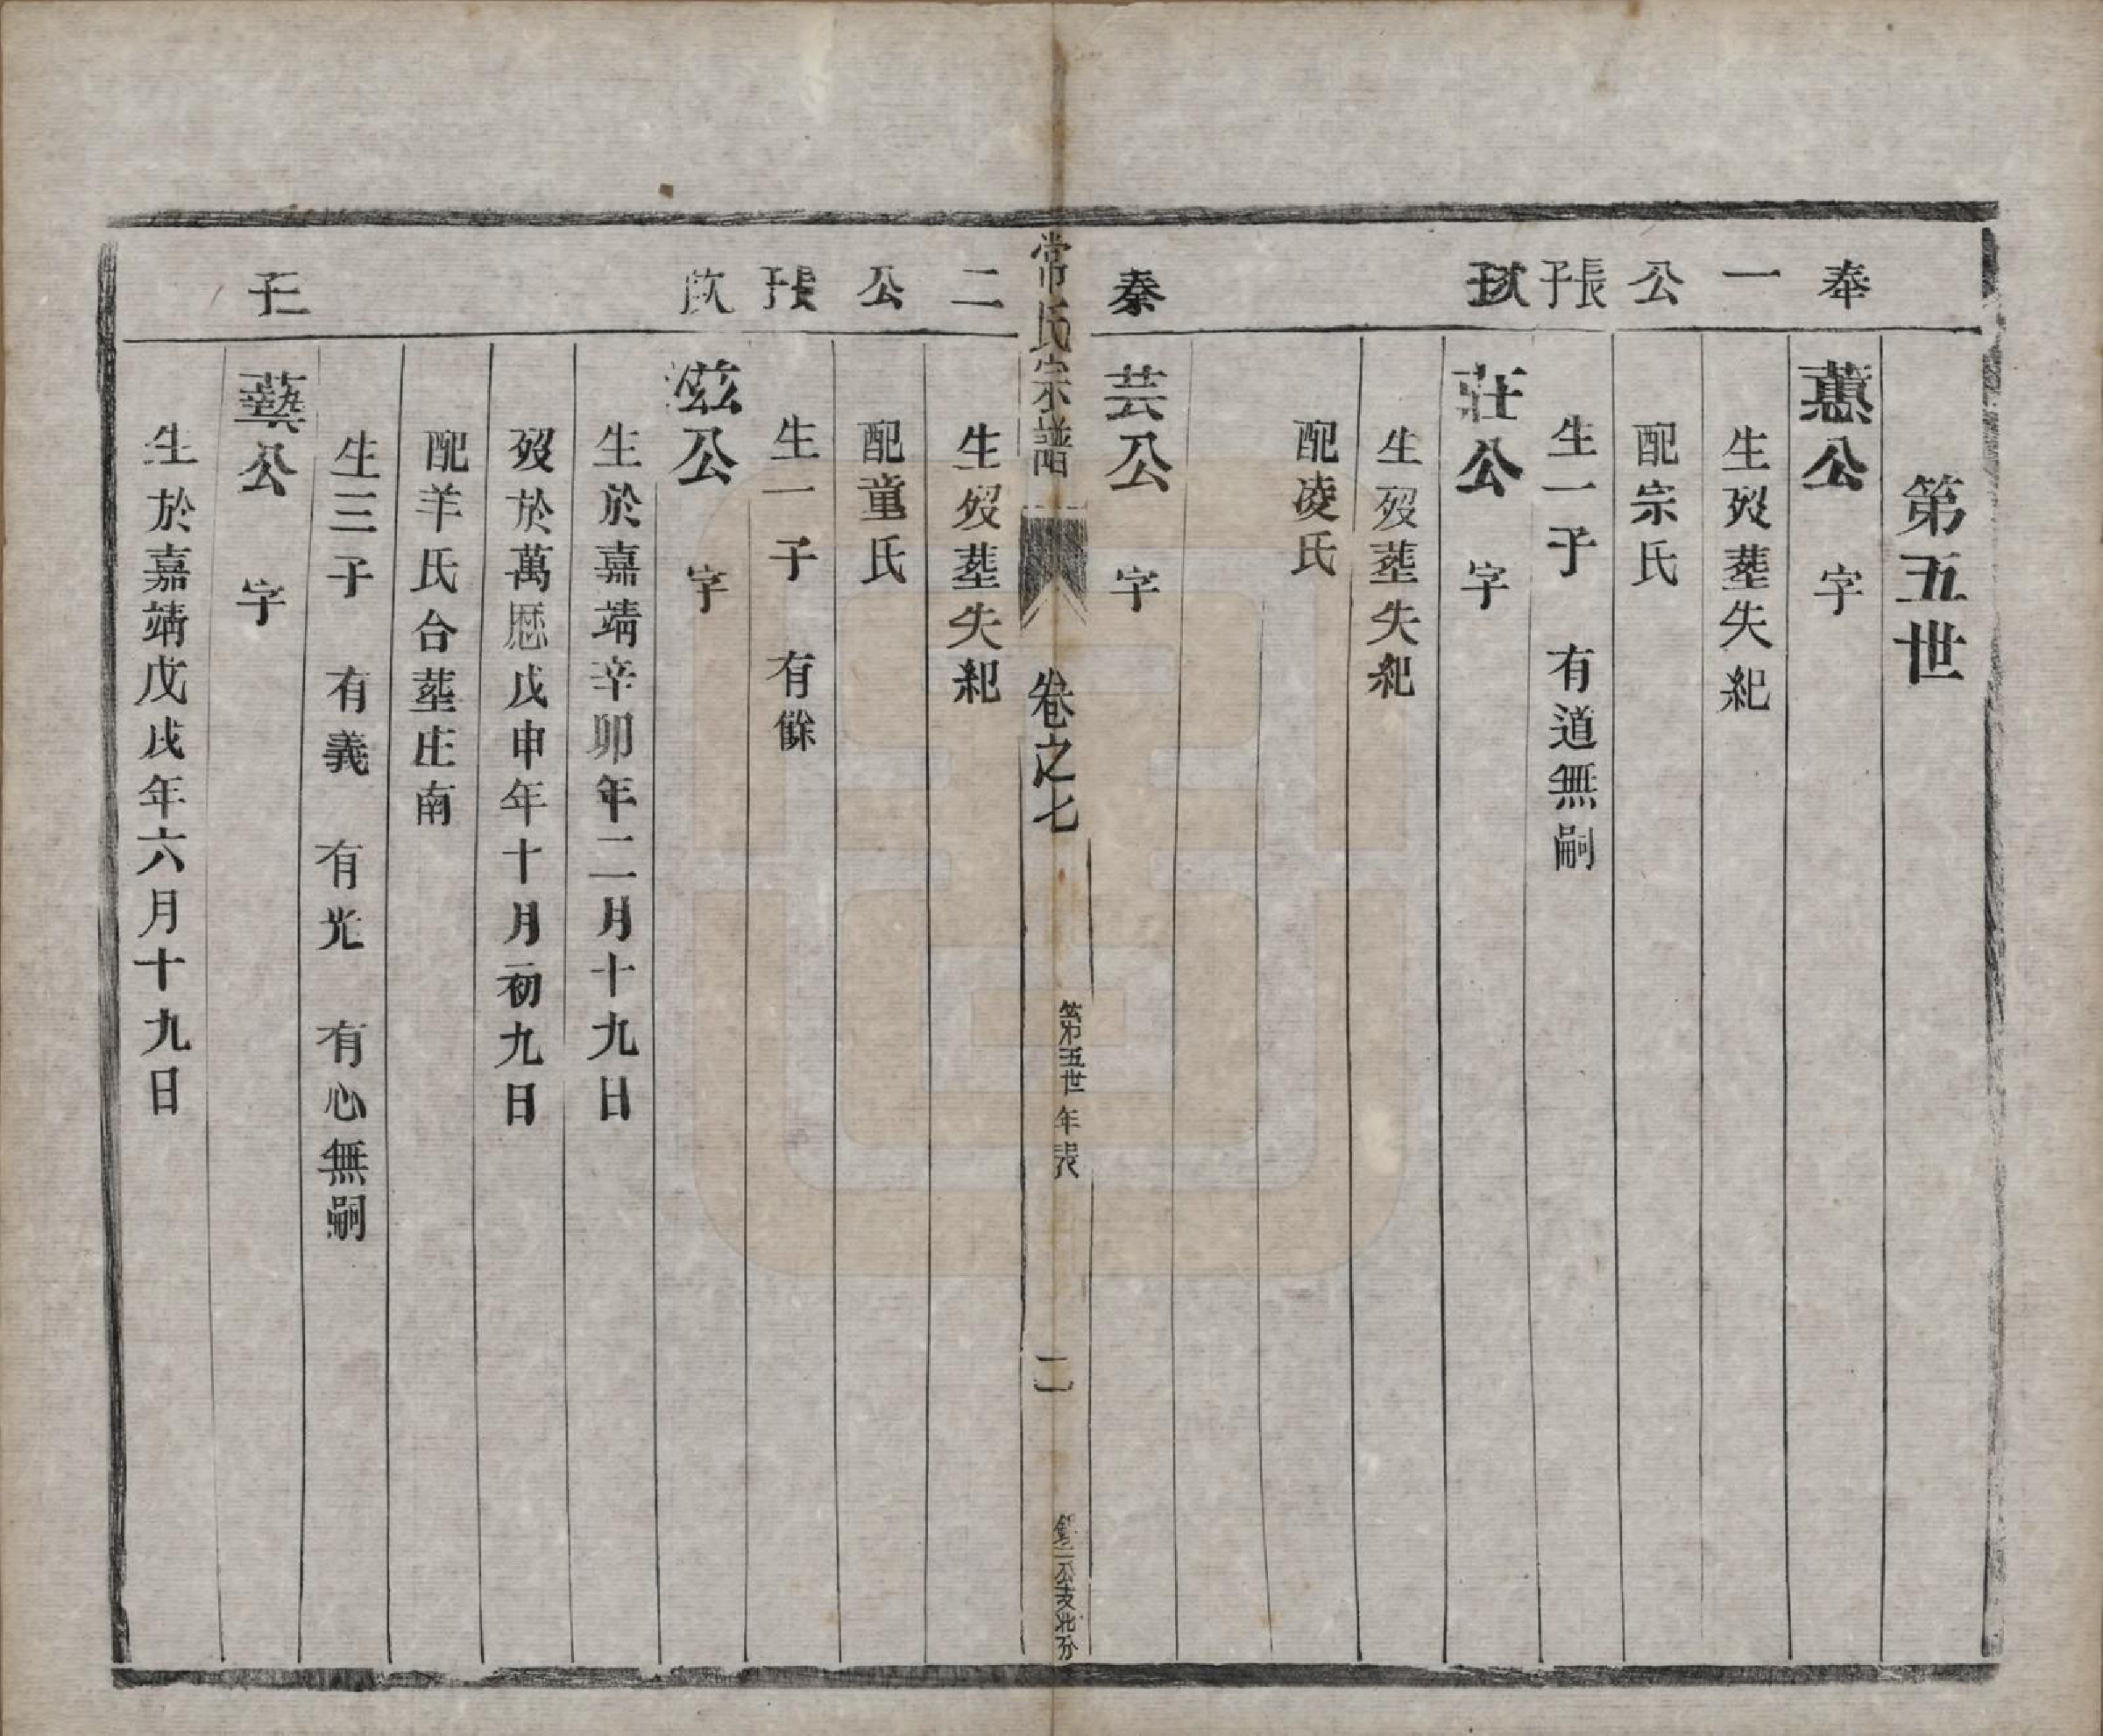 第五世
奉一公長子
蕙公 字
生殁塟失紀
配宗氏
生一子 有道無嗣
次子
莊公 字
生殁塟失紀
配凌氏
秦二公長子
芸公 字
常氏宗譜 卷之七 第五世年表 二
生殁塟失紀
配童氏
生一子 有餘
次
茲公 字
生於嘉靖辛卯年二月十九日
殁於萬曆戊申年十月初九日
配羊氏合塟庄南
生三子 有義 有光 有心無嗣
三子
藝公 字
生於嘉靖戊戌年六月十九日